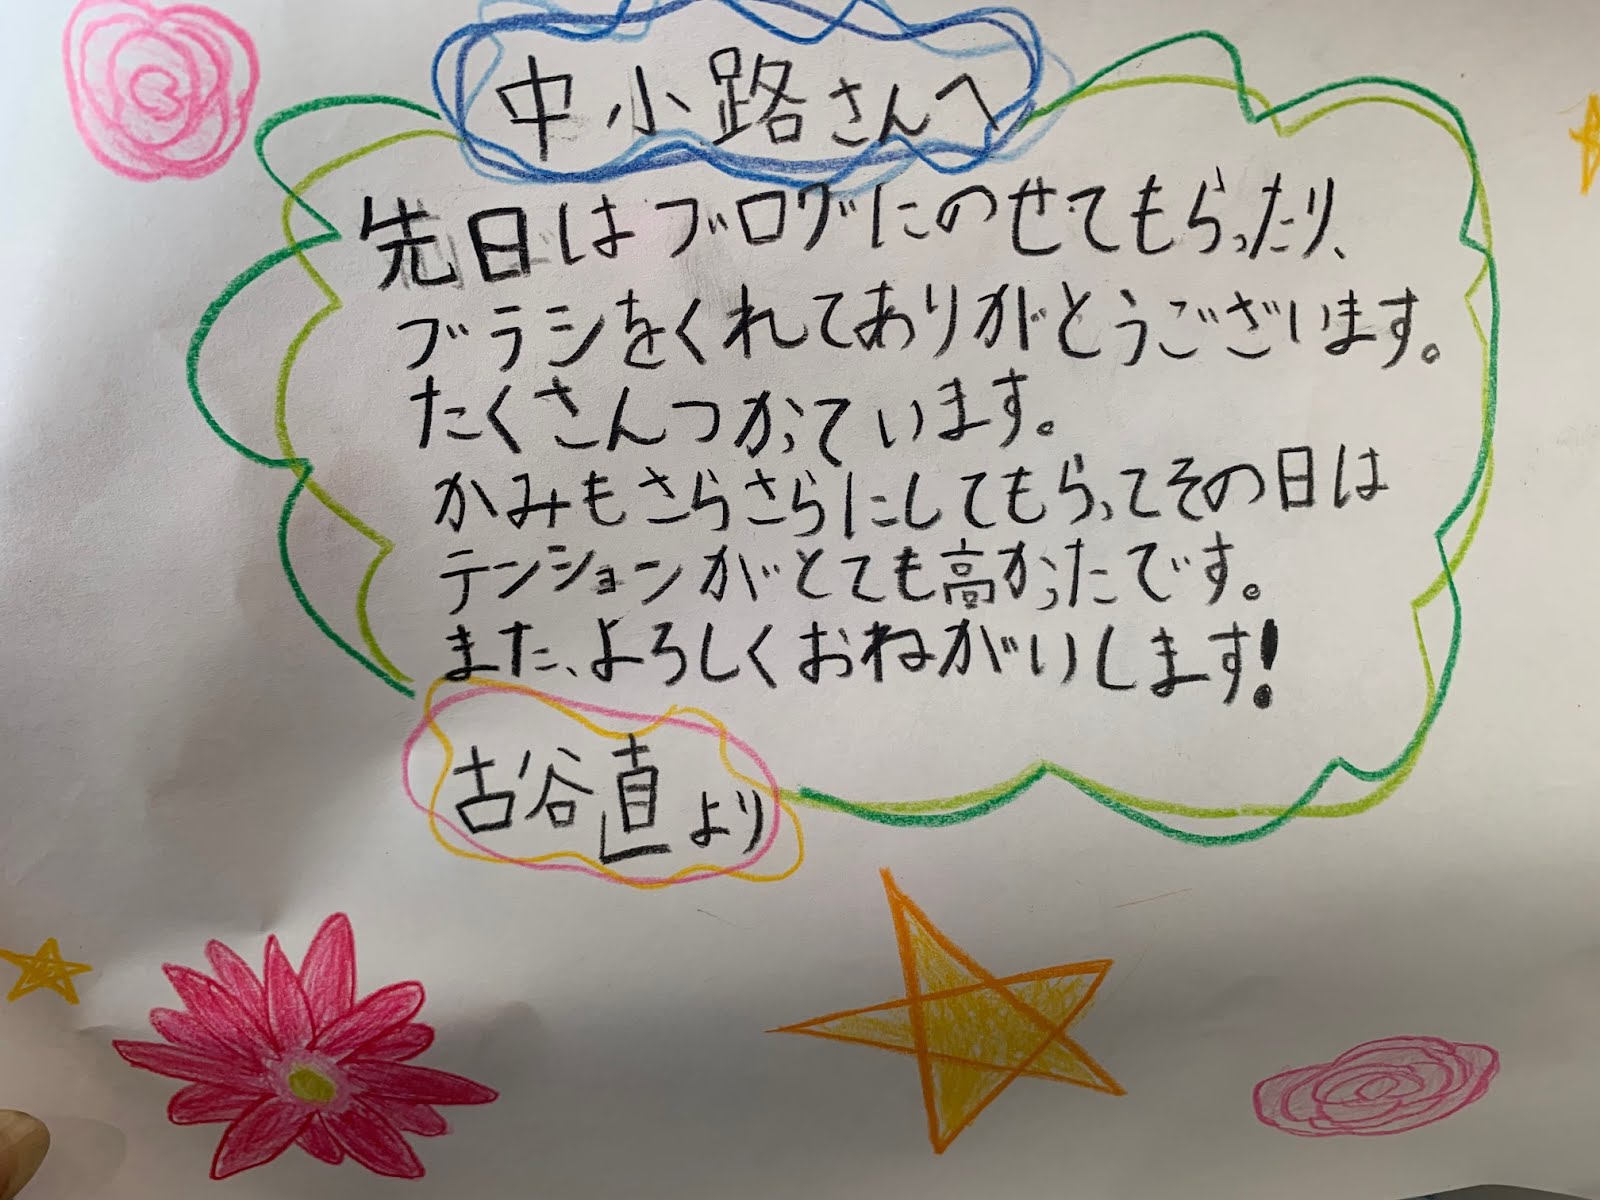 中小路さんへ
先日はブログにのせてもらったり、
ブラシをくれてありがとうございます。
たくさんつかっています。
かみもさらさらにしてもらってその日は
テンションがとても高かったです。
また、よろしくおねがいします!
古谷直より